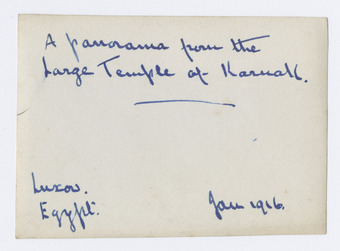 A panorama from the
Large Temple of Karnak.
Luxor.
Egypt.
Jan 1916.